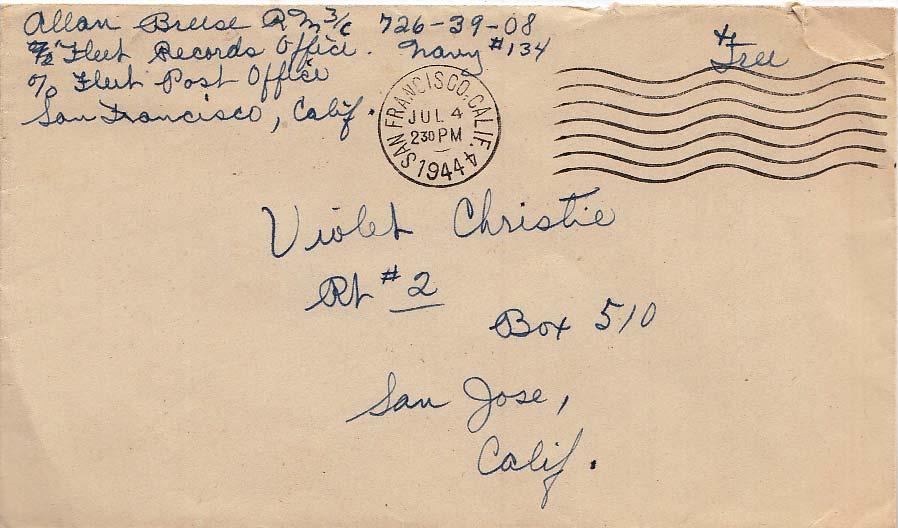 Allan Breese RM 3/c 726-39-08
% Fleet Records Office. Navy #134
% Fleet Post Office
San Francisco, Calif.
Free
SAN FRANCISCO, CALIF. 4
JUL 4
230 PM
1944
Violet Christie
Rt #2
Box 510
San Jose,
Calif.